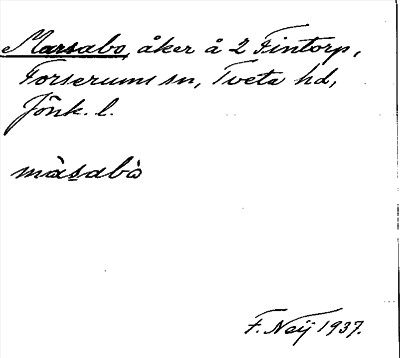 Marsabo, åker å 2 Fintorp,
Forserums sn, Tveta hd,
Jönk. l.
màsabò
F. Neij 1937.